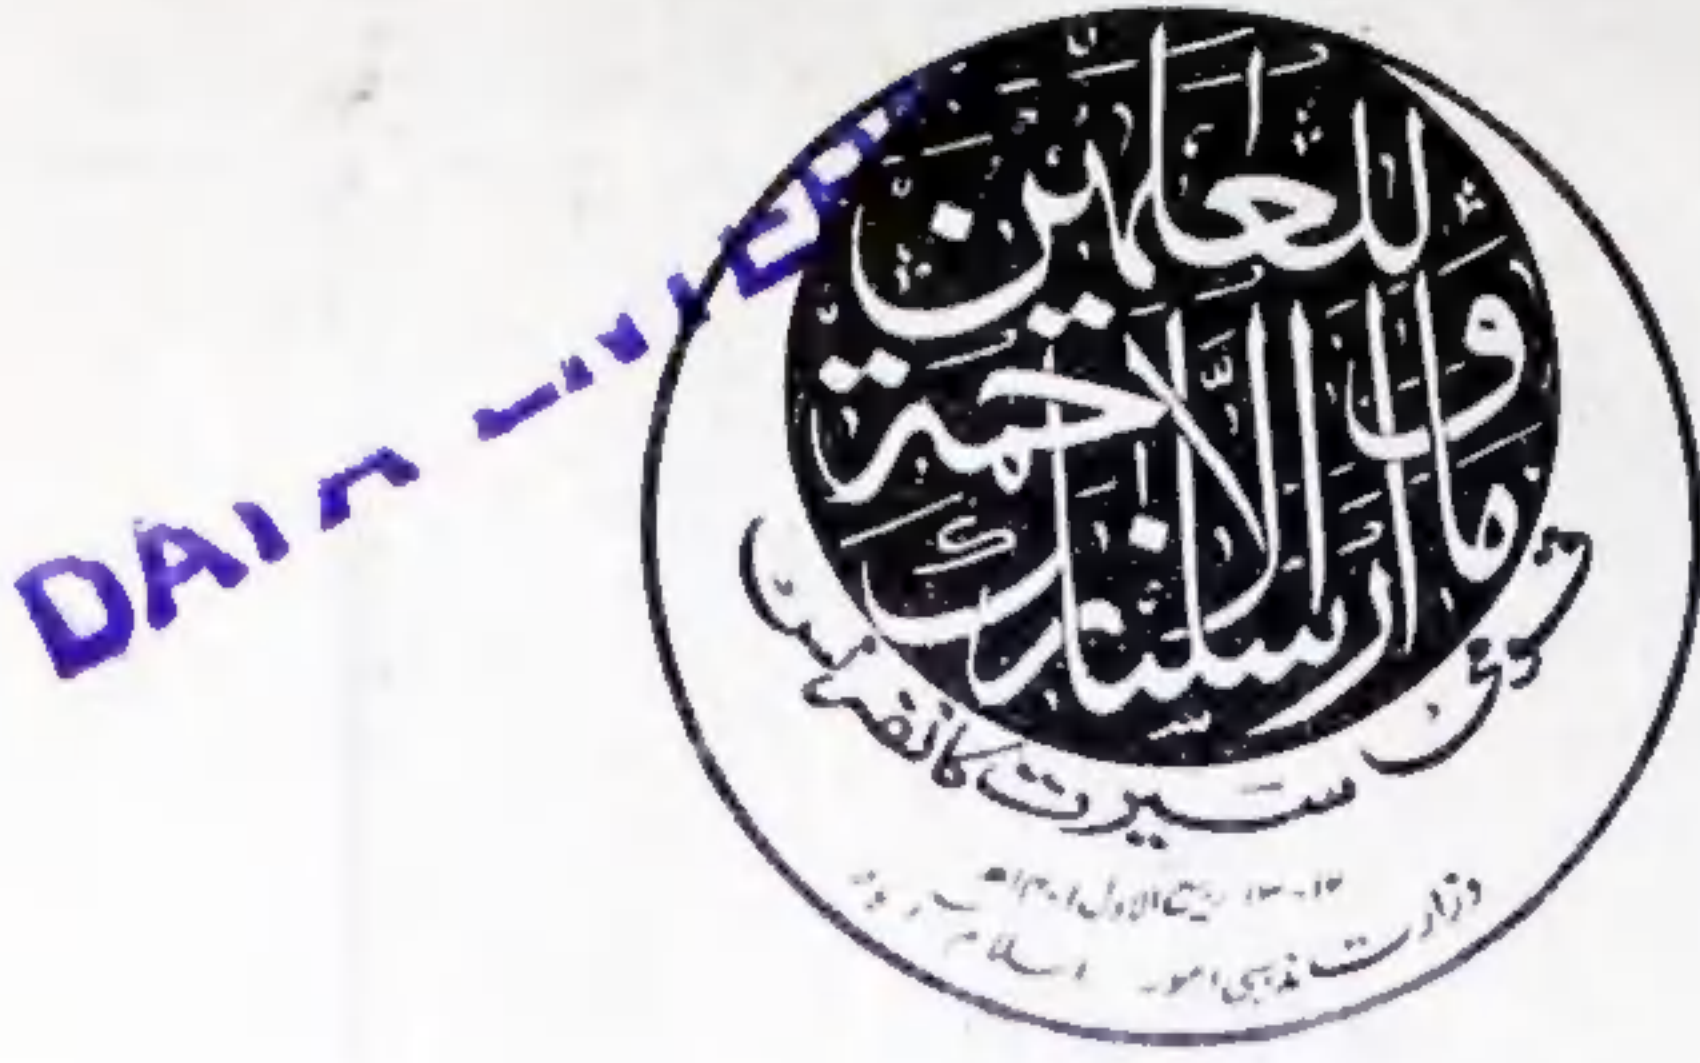 وَمَا أَرْسَلْنَاكَ إِلَّا رَحْمَةً لِّلْعَالَمِينَ
قومی سیرت کانفرنس
۱۲-۱۳ ربیع الاول ۱۴۰۱ھ
وزارت مذہبی امور اسلام